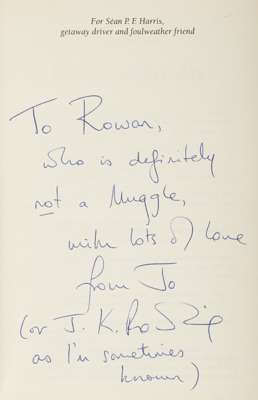 For Séan P. F. Harris,
getaway driver and foulweather friend
To Rowan,
who is definitely
not a Muggle,
with lots of love
from Jo
(or J. K. Rowling
as I'm sometimes
known)